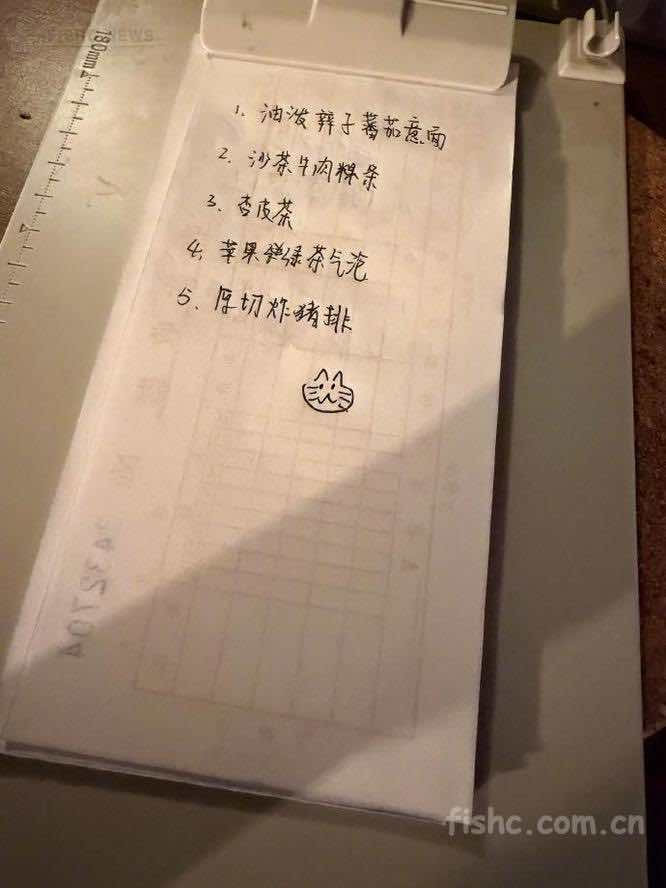 180mm
1. 油泼辣子蕃茄意面
2. 沙茶牛肉粿条
3. 杏皮茶
4. 苹果绿茶气泡
5. 厚切炸猪排
fishc.com.cn